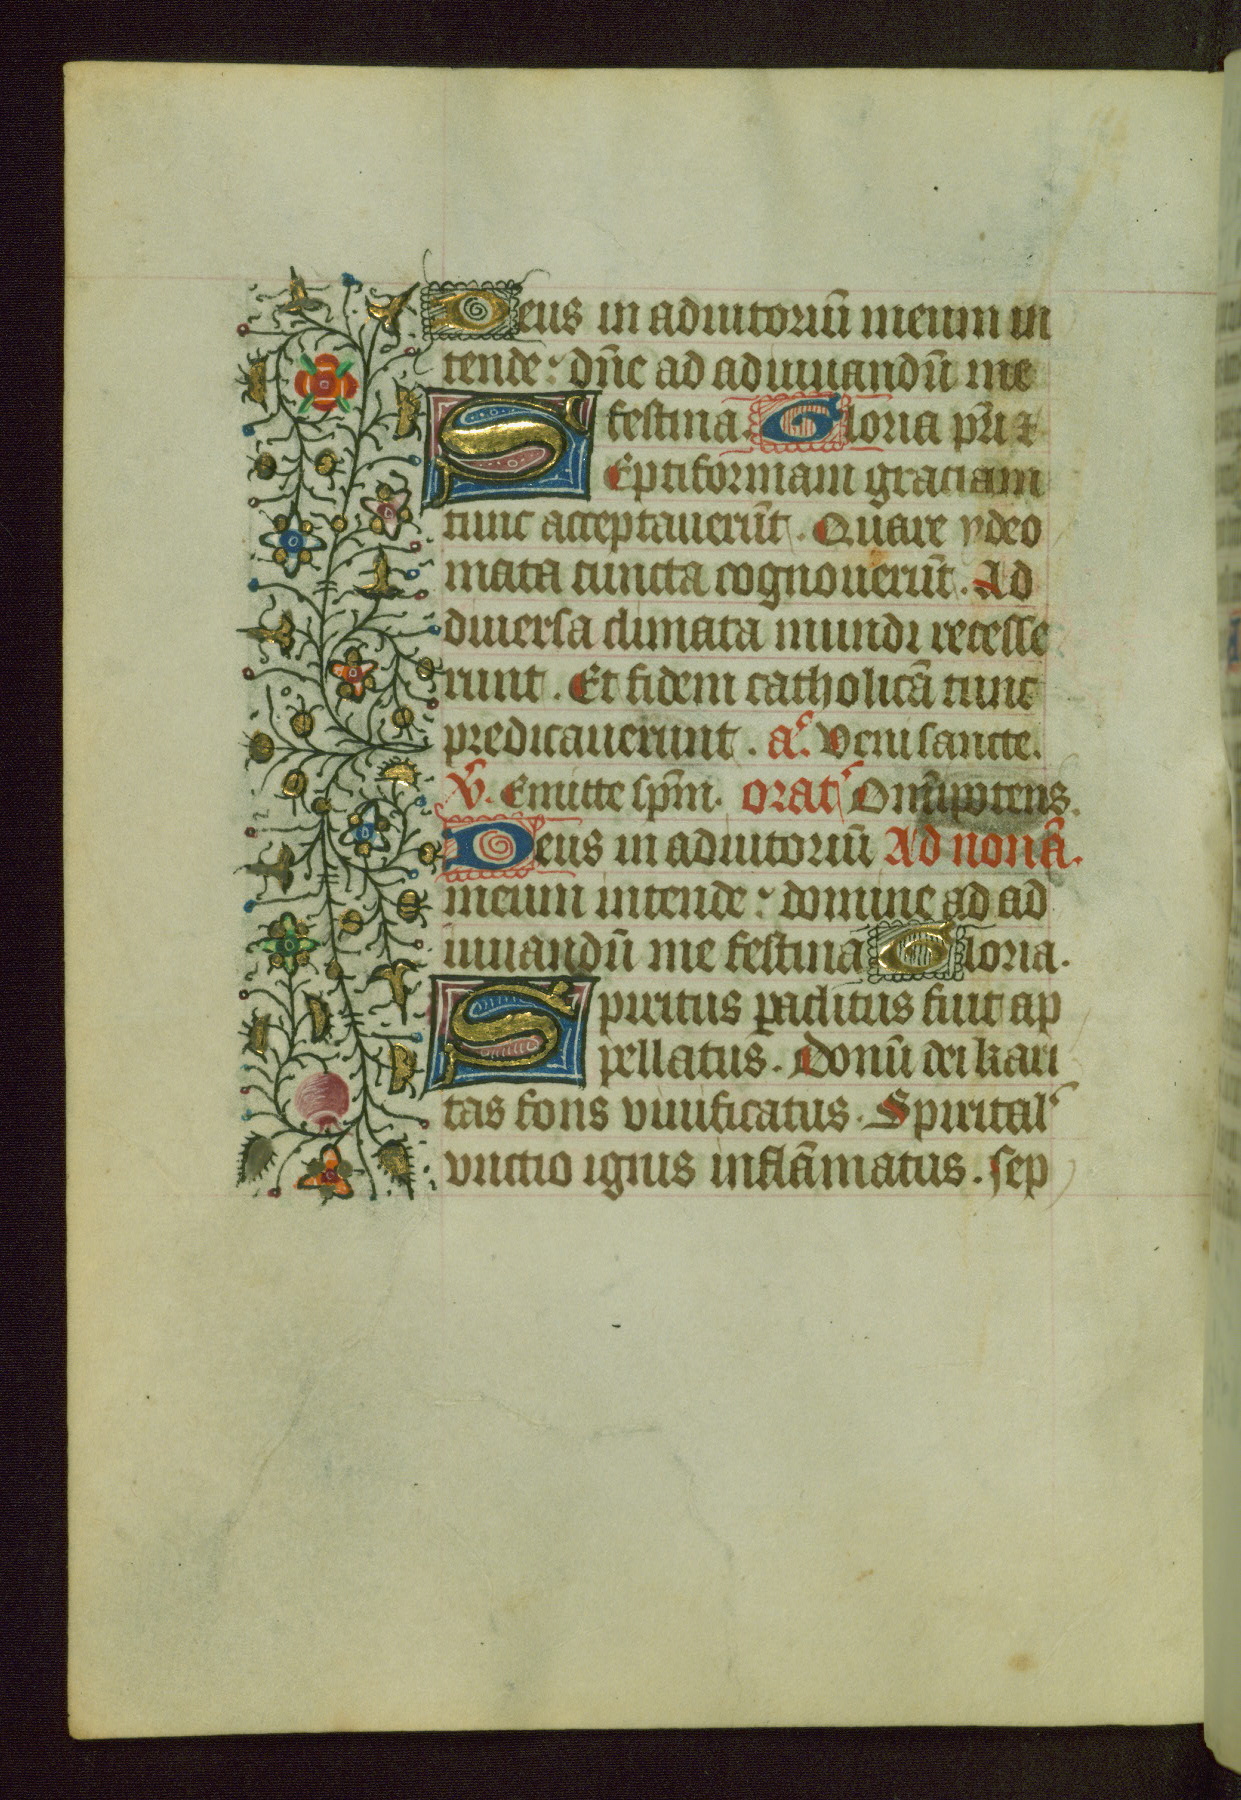 Deus in adiutoriū meum in
tende : dn̄e ad adiuuandū me
festina Gloria pr̄i ⁊
Septiformam graciam
tunc acceptauerūt . Quare ydeo
mata cuncta cognouerūt . Ad
diuersa climata mundi recesse
runt . Et fidem catholicā tunc
predicauerunt . aͨ. Veni sancte.
V̄. Emitte sp̄m. orat Om̄ip̄otens.
Deus in adiutoriū Ad nonā.
meum intende : domine ad ad
iuuandū me festina Gloria.
Spiritus paclitus fuit ap
pellatus . Donū dei kari
tas fons viuificatus . Spiritaľ
vnctio ignis inflāmatus . sep